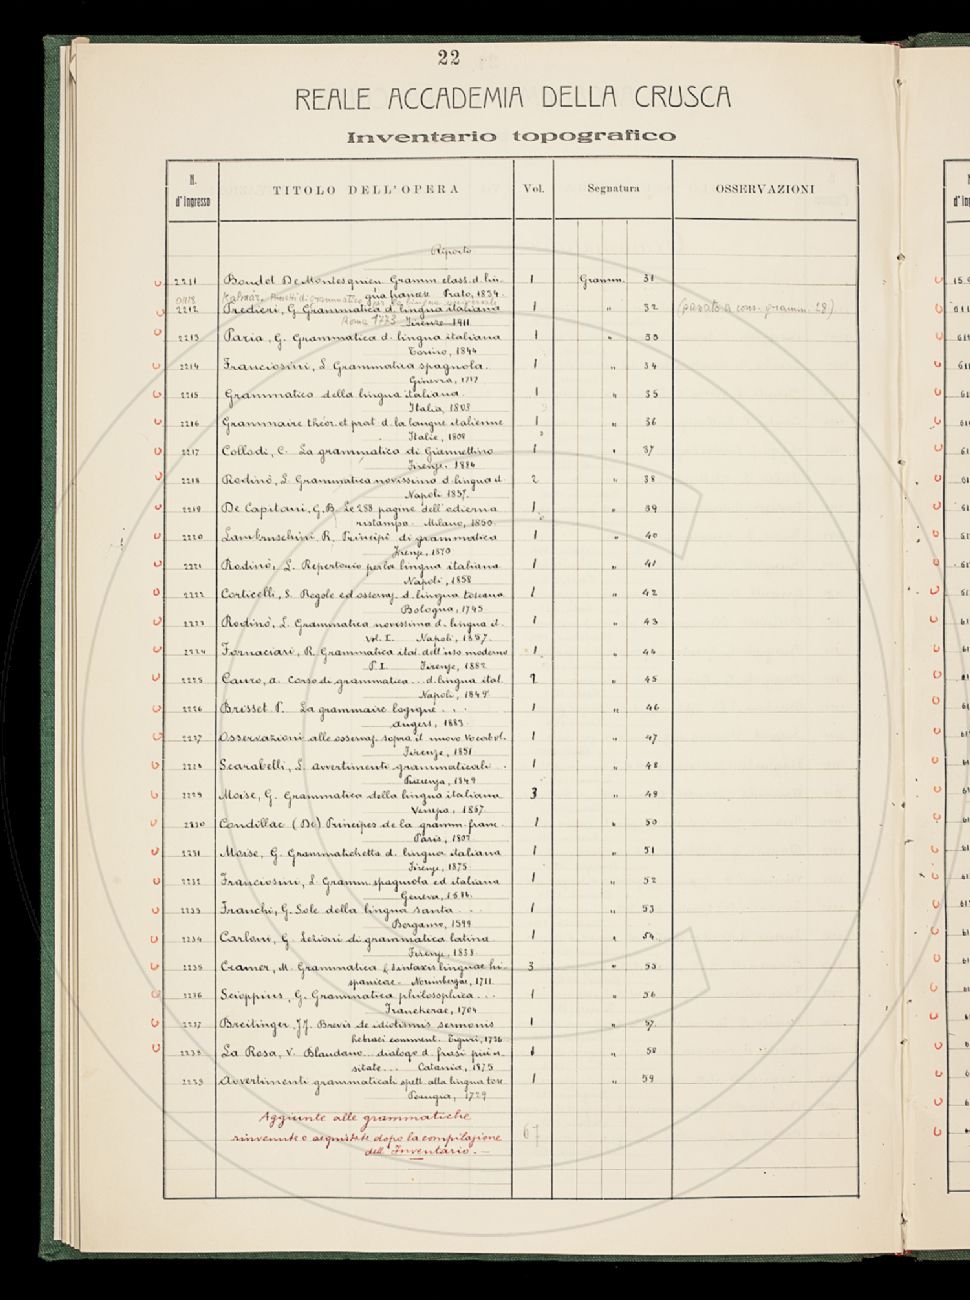 22
REALE ACCADEMIA DELLA CRUSCA
Inventario topografico
N. d'Ingresso TITOLO DELL'OPERA Vol. Segnatura OSSERVAZIONI
Riporto
2211 Boudet De Montesquieu Gramm. class. d. lin- 1 Gramm. 31
gua francese Prato, 1834.
per la lingua universale
2212 Predieri, G. Grammatica d. lingua italiana 1 " 32 (passato a cons. gramm. 28)
Roma 1773 Firenze 1911
2213 Paria, G. Grammatica d. lingua italiana 1 " 33
Torino, 1844
2214 Franciosini, L. Grammatica spagnola. 1 " 34
Ginevra, 1717
2215 Grammatica della lingua italiana. 1 " 35
Italia, 1808
2216 Grammaire théor. et prat. d. la langue italienne 1 " 36
Italie, 1808
2217 Collodi, C. La grammatica di Giannettino 1 " 37
Firenze, 1884
2218 Rodinò, L. Grammatica novissima d. lingua it. 2 " 38
Napoli 1857.
2219 De Capitani, G.B. Le 288 pagine dell'odierna 1 " 39
ristampa. Milano, 1830.
2220 Lambruschini, R. Principi di grammatica 1 " 40
Firenze, 1870
2221 Rodinò, L. Repertorio per la lingua italiana 1 " 41
Napoli, 1858
2222 Corticelli, S. Regole ed osservaz. d. lingua toscana 1 " 42
Bologna, 1745
2223 Rodinò, L. Grammatica novissima d. lingua it. 1 " 43
Vol. I. Napoli, 1857.
2224 Fornaciari, R. Grammatica ital. dell'uso moderno 1 " 44
P. I. Firenze, 1882
2225 Cauro, A. Corso di grammatica ... d. lingua ital. 2 " 45
Napoli, 1849.
2226 Brisset P. La grammaire logique ... 1 " 46
Angers, 1883.
2227 Osservazioni alle osservaz. sopra il nuovo Vocabol. 1 " 47
Firenze, 1851
2228 Scarabelli, L. Avvertimenti grammaticali. 1 " 48
Piacenza, 1849
2229 Moise, G. Grammatica della lingua italiana 3 " 49
Venezia, 1867.
2230 Condillac (De) Principes de la gramm. franc. 1 " 50
Paris, 1802
2231 Moise, G. Grammatichetta d. lingua italiana 1 " 51
Firenze, 1875
2232 Franciosini, L. Gramm. spagnola ed italiana 1 " 52
Geneva,
2233 Franchi, G. Sole della lingua santa ... 1 " 53
Bergamo, 1599
2234 Carloni, G. Lezioni di grammatica latina 1 " 54
Firenze, 1838
2235 Cramer, M. Grammatica & sintaxis linguae hi- 3 " 55
spanicae. Norimbergae, 1711
2236 Scioppius, G. Grammatica philosophica ... 1 " 56
Franekerae, 1704
2237 Breitinger, J.J. Brevis de idiotismis sermonis 1 " 57
hebraei comment. Tiguri, 1736
2238 La Rosa, V. Blandano ... dialogo d. frasi più u- 1 " 58
sitate ... Catania, 1875
2239 Avvertimenti grammaticali spett. alla lingua tosc. 1 " 59
Perugia, 1729
Aggiunte alle grammatiche
rinvenute o acquistate dopo la compilazione 67
dell'Inventario. —